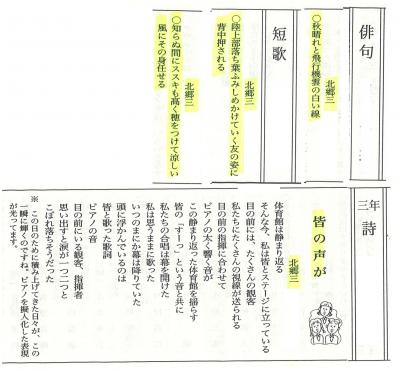 俳句
北郷三
○秋晴れと飛行機雲の白い線
短歌
北郷三
○陸上部落ち葉ふみしめかけていく友の姿に
背中押される
北郷三
○知らぬ間にススキも高く穂をつけて涼しい
風にその身任せる
三年 詩
皆の声が
北郷三
体育館は静まり返る
そんな今、私は皆とステージに立っている
目の前には、たくさんの観客
私たちにたくさんの視線が送られる
目の前の指揮に合わせて
ピアノの太く響く音が
この静まり返った体育館を揺らす
皆の「すーっ」という音と共に
私たちの合唱は幕を開けた
私は思うままに歌った
いつのまにか幕は降りていた
頭に浮かんでいるのは
皆と歌った歌詞
ピアノの音
目の前にいる観客、指揮者
思い出すと涙が一つ二つと
こぼれ落ちそうだった
※ この日のために積み上げてきた日々が、この
一瞬に輝くのですね。ピアノを擬人化した表現
が光ってます。